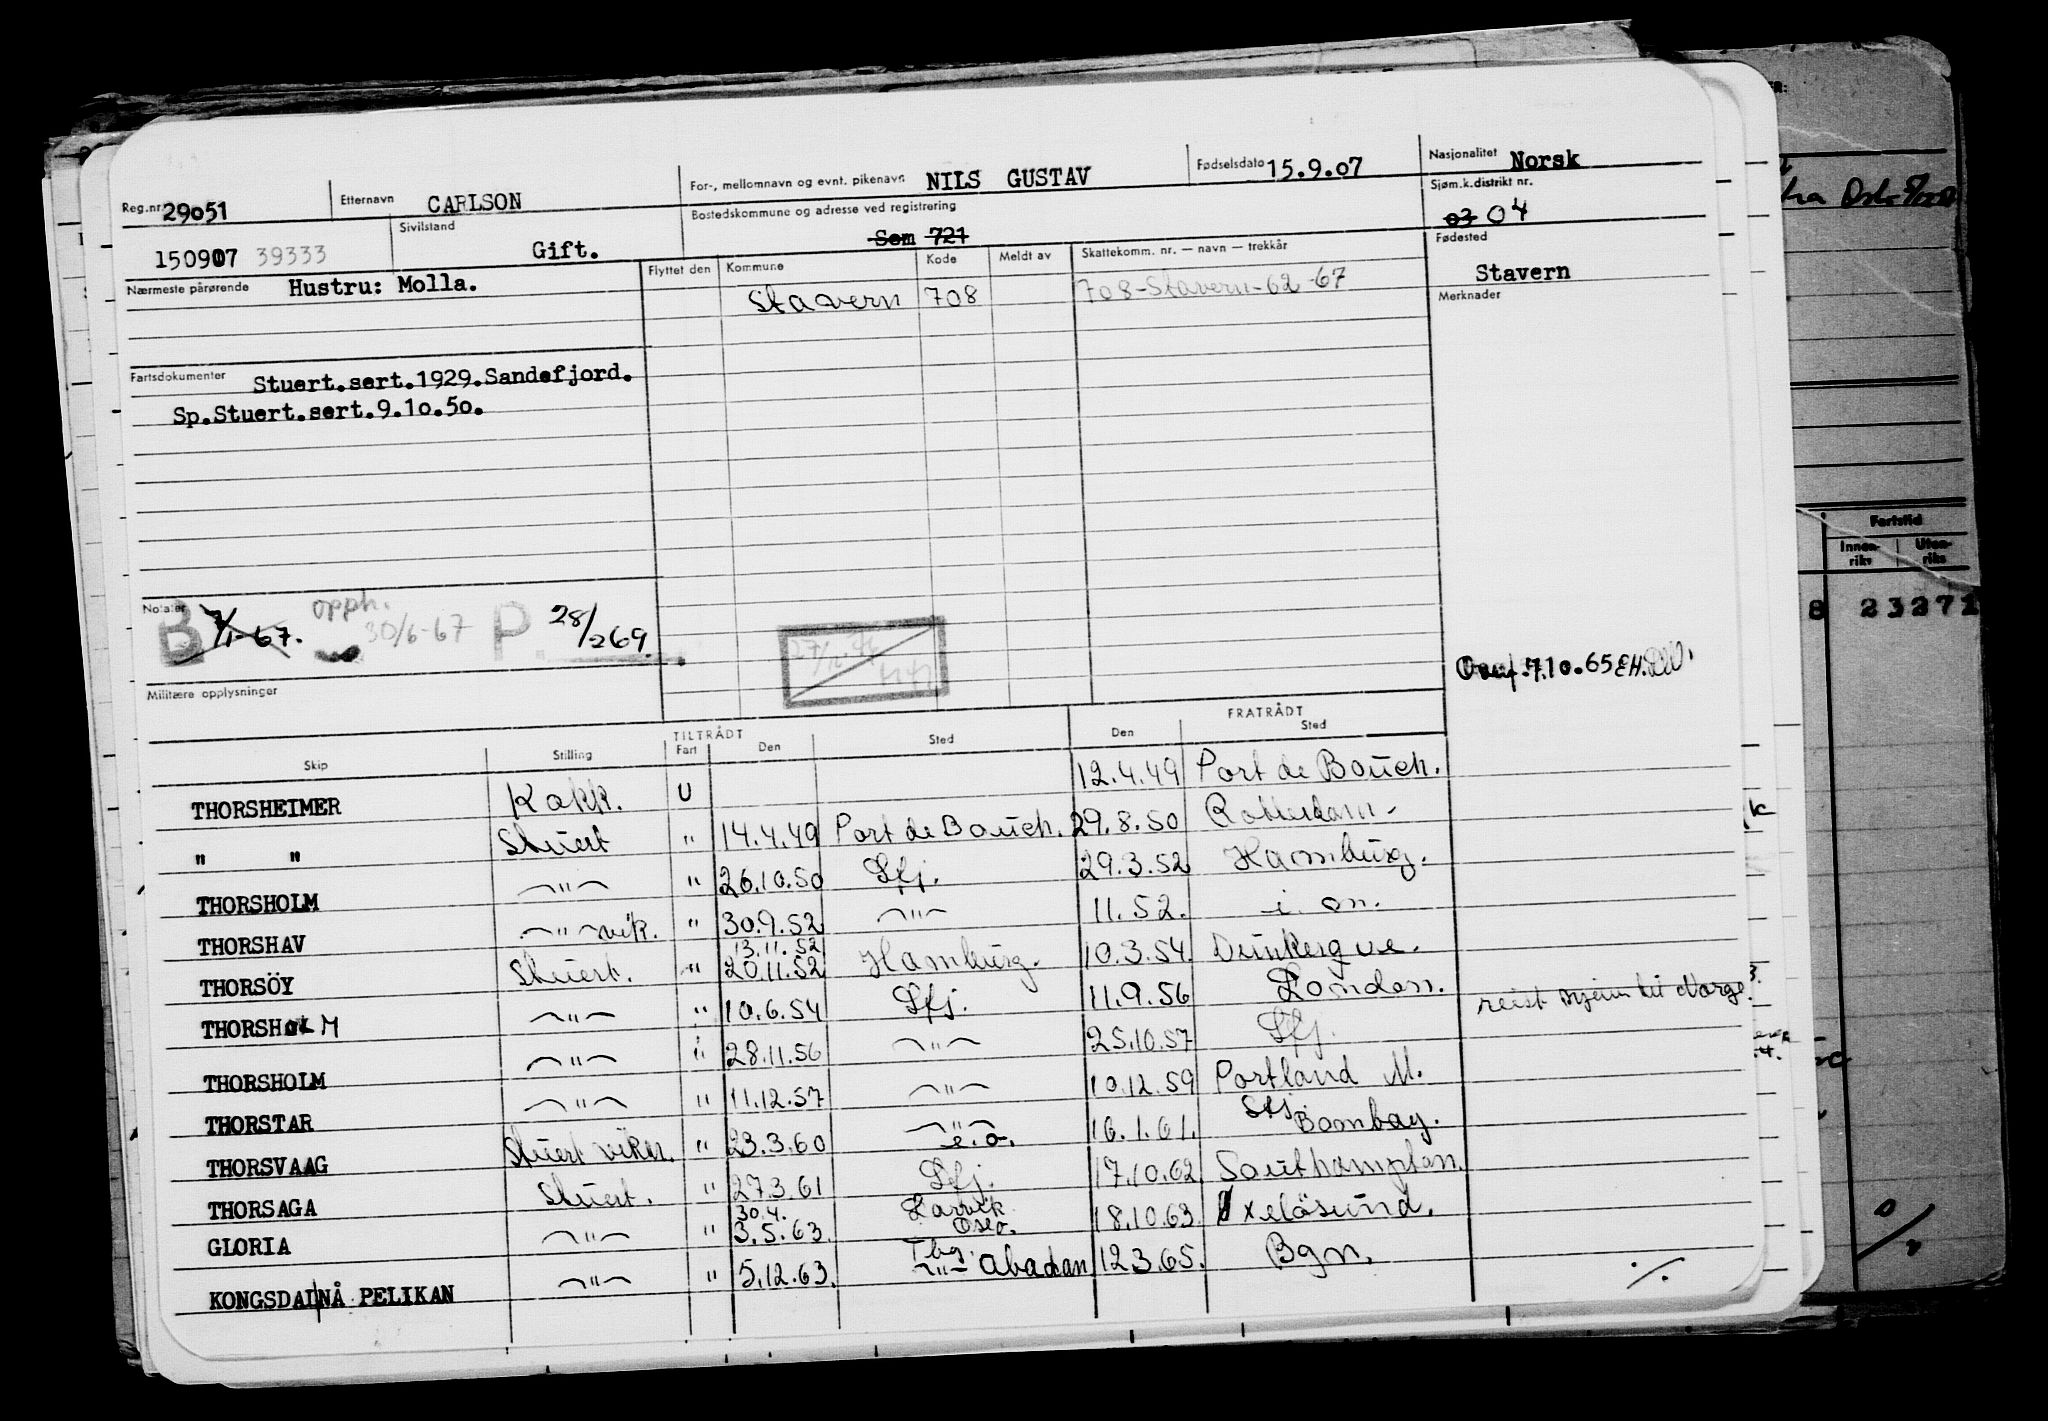 Reg.nr. 29051 Etternavn CARLSON For-, mellomnavn og evnt. pikenavn NILS GUSTAV Fødselsdato 15.9.07 Nasjonalitet Norsk
150907 39333 Sivilstand Gift. Bostedskommune og adresse ved registrering Sem 721 Sjøm.k.distrikt nr. 03 04
Nærmeste pårørende Hustru: Molla. Flyttet den Kommune Kode Meldt av Skattekomm. nr. — navn — trekkår Fødested Stavern
Stavern 708 708-Stavern-62-67 Merknader
Fartsdokumenter Stuert.sert.1929.Sandefjord.
Sp.Stuert.sert.9.10.50.
Notater B 7/1-67. opph. 30/6-67 P. 28/269.
7.10.65
Militære opplysninger
TILTRÅDT FRATRÅDT
Skip Stilling Fart Den Sted Den Sted
THORSHEIMER Kokk. U 12.4.49 Port de Bouch.
" " Stuert " 14.4.49 Port de Bouch. 29.8.50 Rotterdam.
THORSHOLM —"— " 26.10.50 Sfj. 29.3.52 Hamburg.
THORSHAV —"— vik. " 30.9.52 —"— 11.52. i. on.
THORSÖY Stuert. " 13.11.52 20.11.52 Hamburg. 10.3.54. Dunkerque.
THORSHOLM —"— " 10.6.54 Sfj. 11.9.56 London. reist hjem til Norge.
THORSHOLM —"— " 28.11.56 —"— 25.10.57 Sfj.
THORSTAR —"— " 11.12.57 —"— 10.12.59 Portland M.
THORSVAAG Stuert vikar. " 23.3.60 —"— e.o. 16.1.61. Sfj. Bombay.
THORSAGA Stuert. " 27.3.61 Sfj. 17.10.62 Southampton.
GLORIA —"— " 30.4. 3.5.63. Larvik Oslo. 18.10.63. Oxelösund.
KONGSDAL NÅ PELIKAN —"— " 5.12.63. Tbg. —"— Abadan 12.3.65. Bgn. ./.
Fartstid
Innen-riks Uten-riks
8 23272